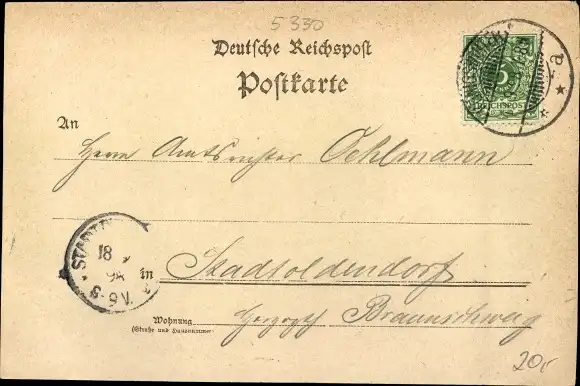 5330
Deutsche Reichspost
Postkarte
5
REICHSPOST
a
An
Herrn Amtsrichter Oehlmann
STADT
18
98
in
Stadtoldendorf
Wohnung
(Straße und Hausnummer)
Herzogth Braunschweig
20,-